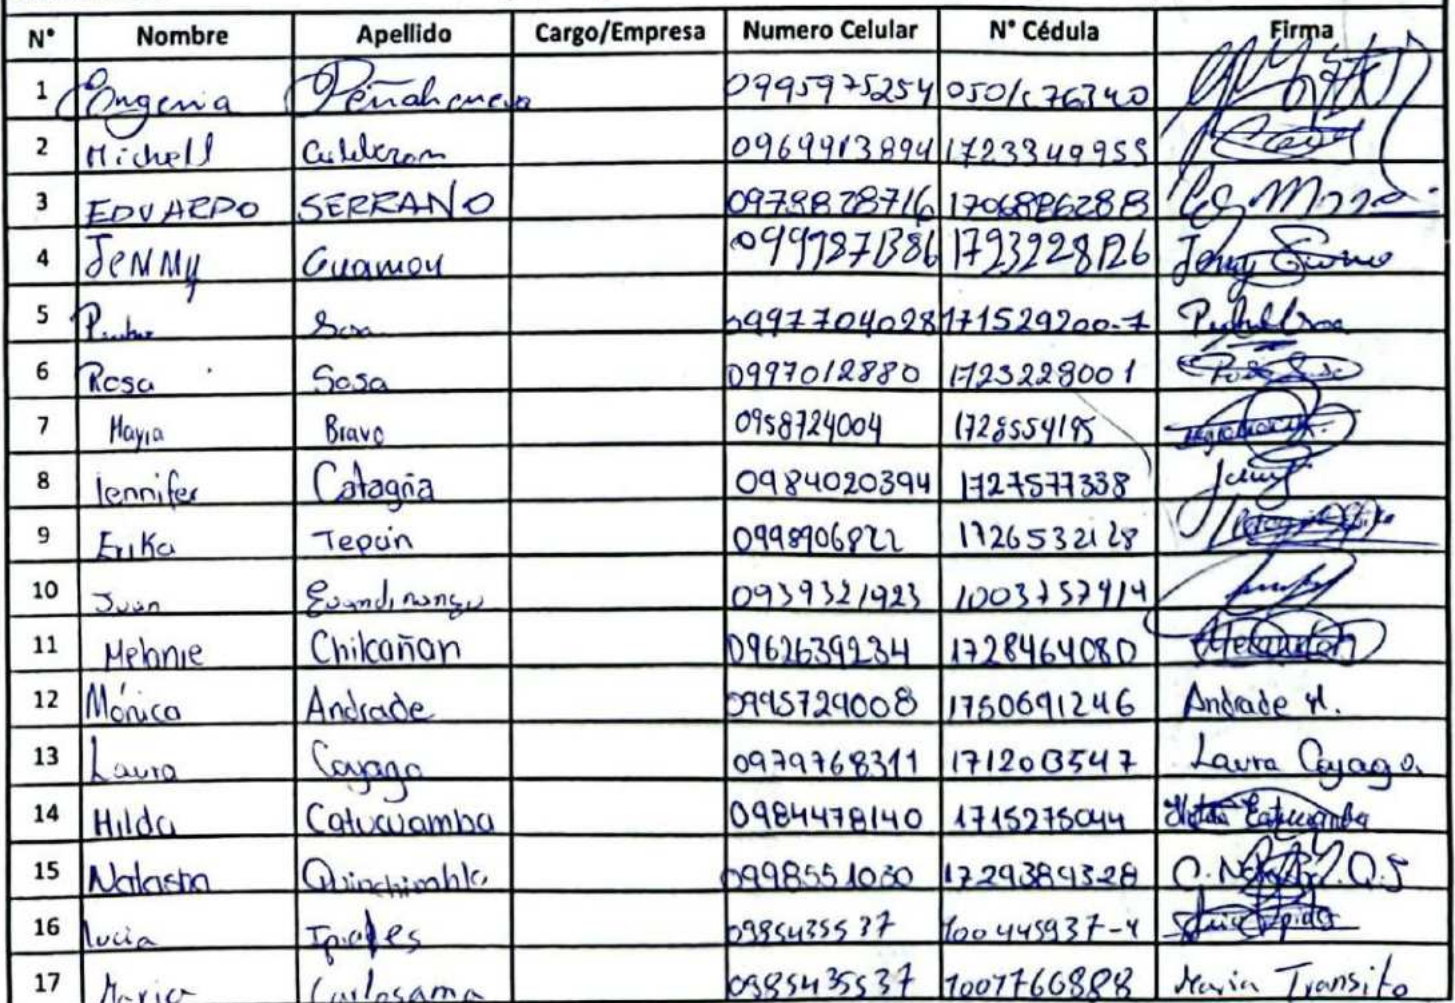 N° Nombre Apellido Cargo/Empresa Numero Celular N° Cédula Firma
1 Eugenia Peñaherrera 0995975254
2 Michell Calderon 0969913894 1723349955
3 EDUARDO SERRANO
4 JENNY Guamon
5 Sosa 0997704028 171529200-7
6 Rosa Sosa 0997012880 1723228001
7 Mayra Bravo 0958724004 1728554195
8 Jennifer Catagña 0984020394 1727577338 Jenny
9 Erika Tepán 0998906822 1726532128
10 Juan 0939321923
11 Melanie Chilcañan 0962639234 1728464080
12 Mónica Andrade 0995729008 1750691246 Andrade M.
13 Laura Cayago 0979768311 Laura Cayago.
14 Hilda Catucuamba 0984478140 1715275044 Hilda Catucuamba
15 Natasha 0998551030 1729384328
16 Lucia Ipiales 0985435537 100445937-4
17 Maria Carlosama 0985435537 1001766888 Maria Transito